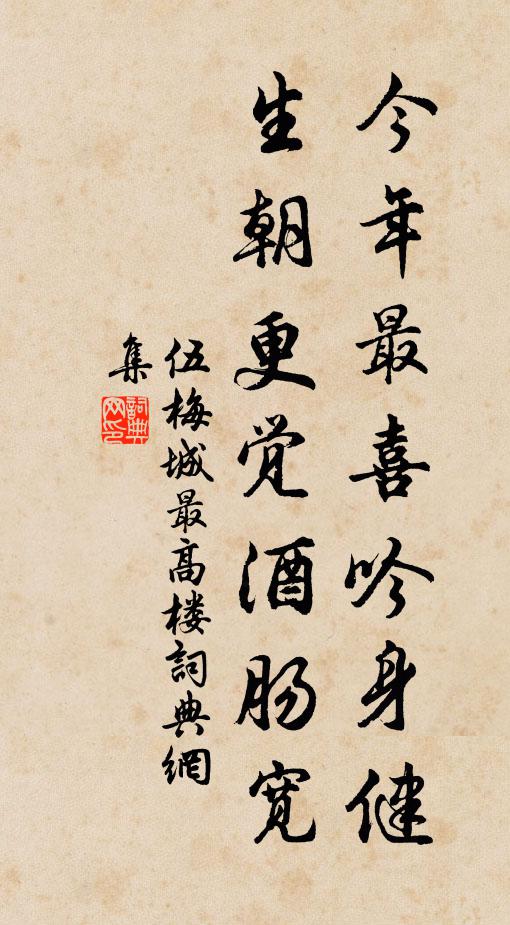 今年最喜吟身健
生朝更觉酒肠宽
伍梅城最高楼词典網
集
詞典网印